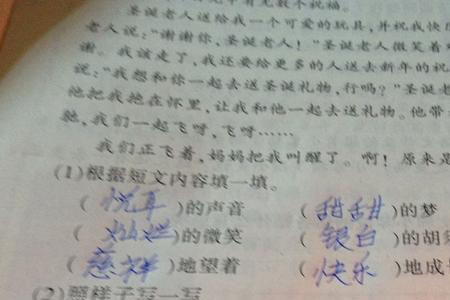 无数个祝福。
圣诞老人送给我一个可爱的玩具，并祝我快
老人说："谢谢你，圣诞老人！"圣诞老人微笑着
谢。我该走了，我还要给更多的人送去新年的祝
说："我想和你一起去送圣诞礼物，行吗？"圣诞老
他把我抱在怀里，让我和他一起去送礼物。他带
驰，我们一起飞呀，飞呀……
我们正飞着，妈妈把我叫醒了。啊！原来是
(1)根据短文内容填一填。
（悦耳）的声音 （甜甜）的梦
（灿烂）的微笑 （银白）的胡须
（慈祥）地望着 （快乐）地成
(2)照样子写一写